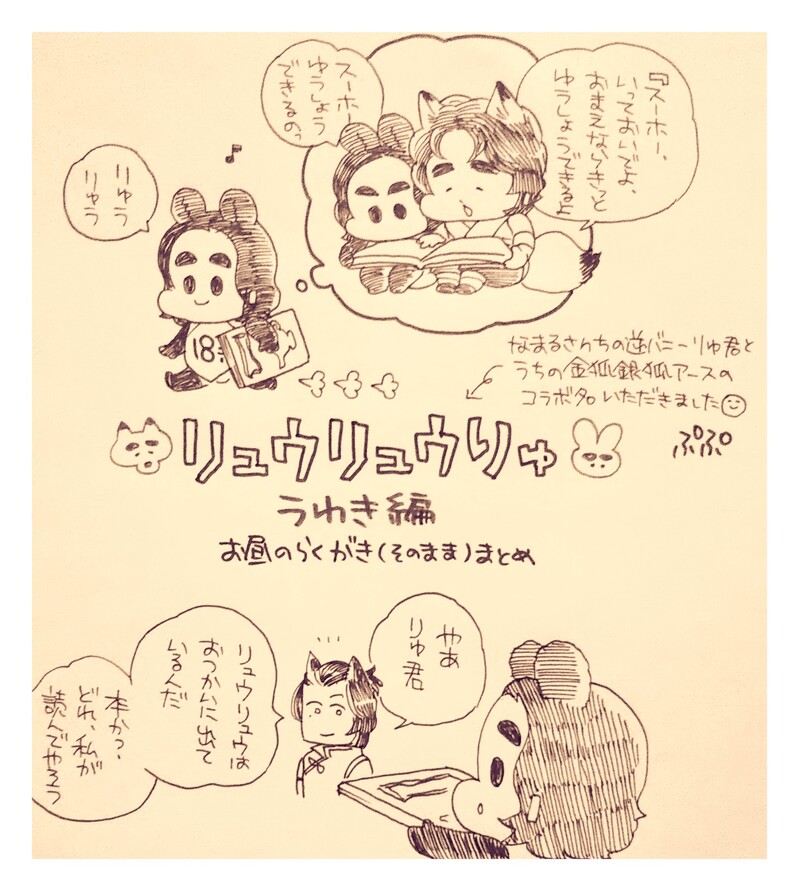 『スーホー、
いっておいでよ、
おまえならきっと
ゆうしょうできるよ
スーホー
ゆうしょう
できるのっ
♪
りゅう
りゅう
18
なまるさんちの逆バニーりゅ君と
うちの金狐銀狐アースの
コラボタ。いただきました
ぷぷ
リュウリュウりゅ
うわき編
お昼のらくがき(そのまま)まとめ
やあ
りゅ君
リュウリュウは
おつかいに出て
いるんだ
本かっ・
どれ、私が
読んでやろう